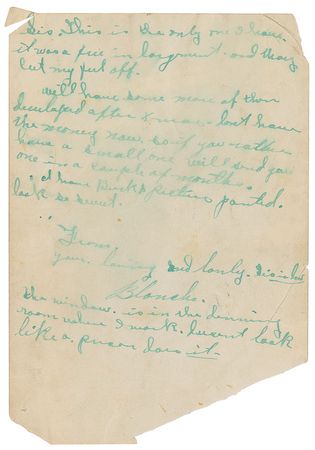 Sis, This is the only one I have.
it was a free in largment. and they
cut my feet off.
will have some more of them
developed after Xmas. dont have
the money now, so if you rather
have a small one will send you
one in a couple of months.
I have Buck's picture painted.
look so sweet.
From,
your loving and lonly
Blanche.
the window. is in the dinning
room where I work. dosent look
like a prison does it.